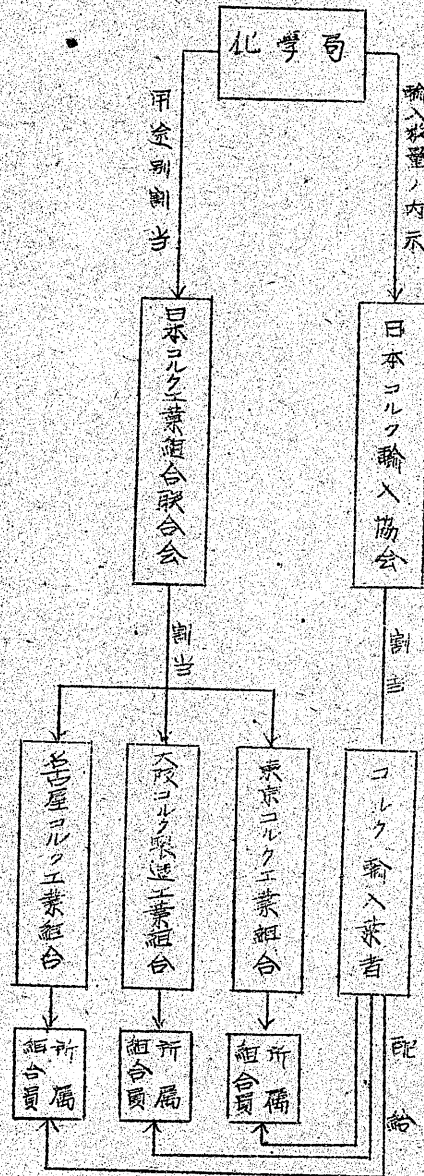 化學局
輸入数量ノ内示
用途別割当
日本コルク輸入協会
日本コルク工業組合联合会
割当
割当
コルク輸入業者
東京コルク工業組合
大阪コルク製造工業組合
名古屋コルク工業組合
配給
所属
組合員
所属
組合員
所属
組合員